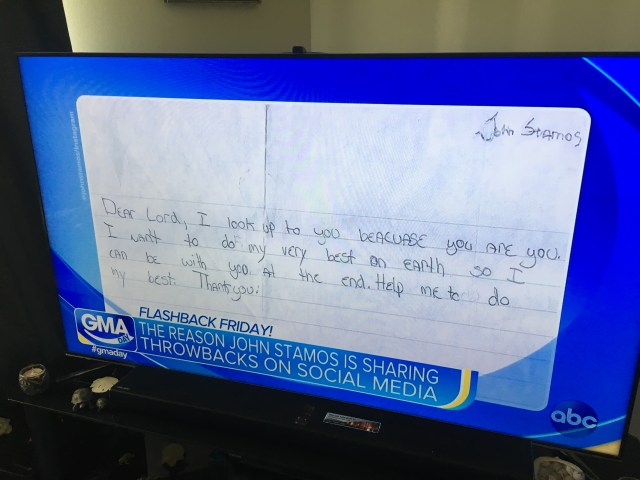 John Stamos
Dear Lord, I look up to you beacuase you are you.
I want to do my very best on earth so I
can be with you at the end. Help me to do
my best. Thankyou.
FLASHBACK FRIDAY!
GMA DAY
THE REASON JOHN STAMOS IS SHARING
#gmaday
THROWBACKS ON SOCIAL MEDIA
abc